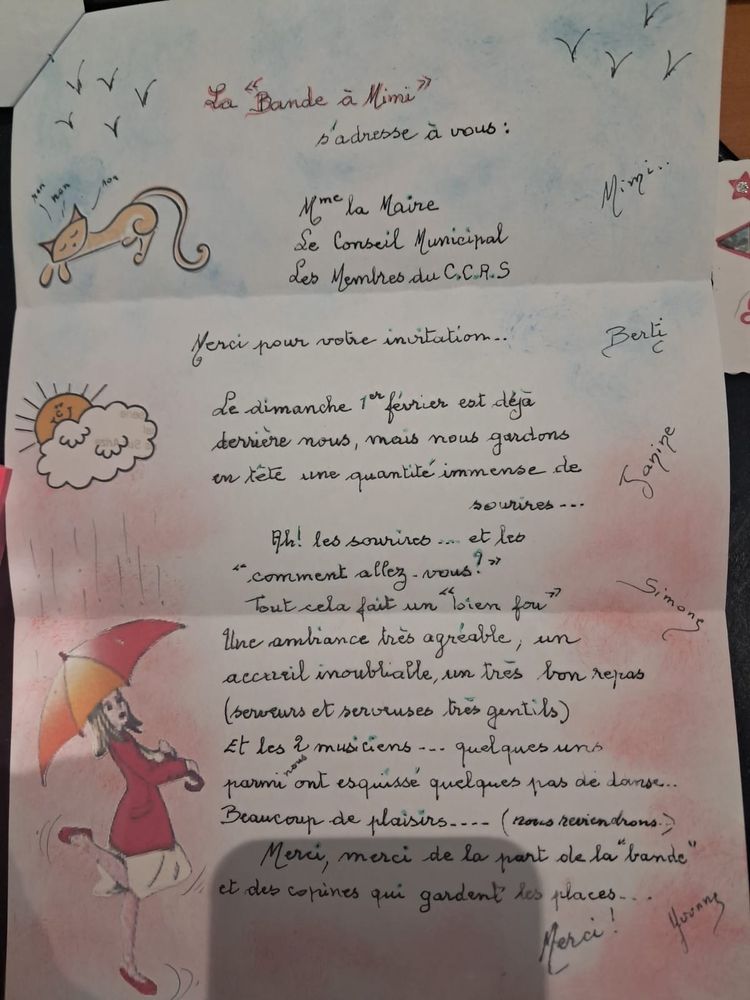 La "Bande à Mimi"
s'adresse à vous :
ron ron ron
Mme la Maire
Mimi..
Le Conseil Municipal
Les Membres du C.C.R.S
Merci pour votre invitation...
Berti
Le dimanche 1er février est déjà
derrière nous, mais nous gardons
en tête une quantité immense de
sourires ---
Janine
Ah! les sourires ... et les
"comment allez-vous?"
Tout cela fait un "bien fou"
Simone
Une ambiance très agréable, un
accueil inoubliable, un très bon repas
(serveurs et serveuses très gentils)
Et les 2 musiciens --- quelques uns
parmi nous ont esquissé quelques pas de danse...
Beaucoup de plaisirs.... (nous reviendrons..)
Merci, merci de la part de la "bande"
et des copines qui gardent les places...
Merci !
Yvonne